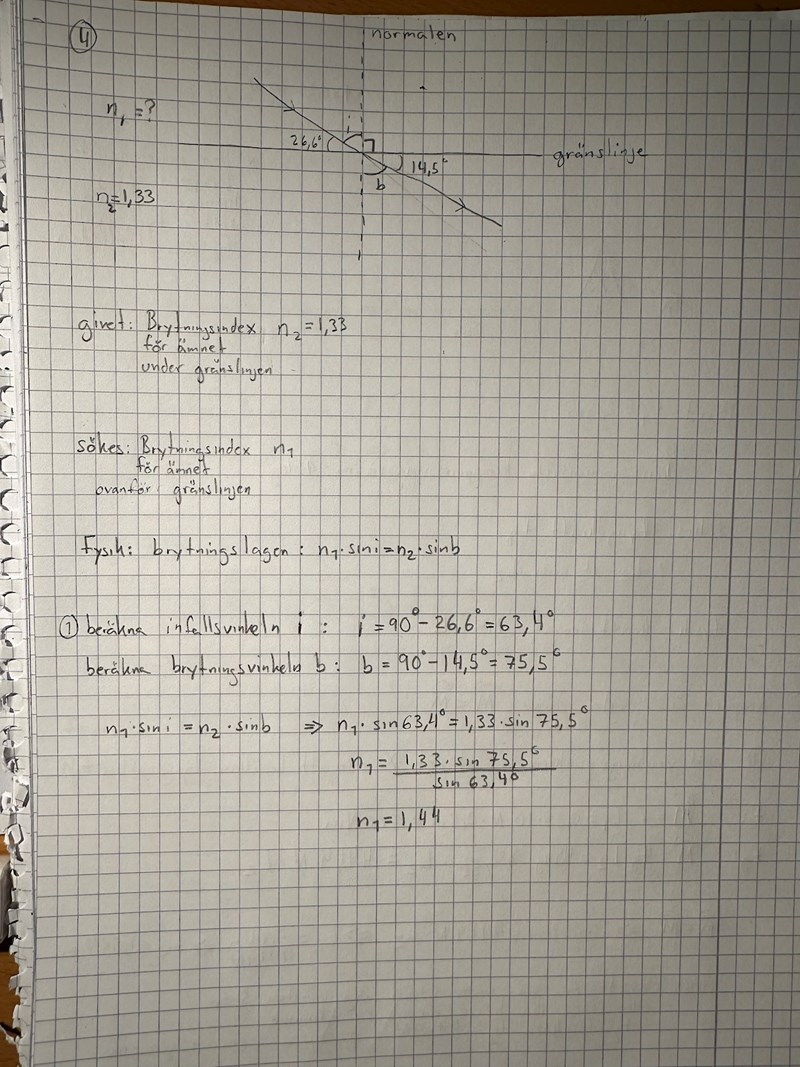 4
normalen
n₁ = ?
i
26,6°
gränslinje
14,5°
b
n₂=1,33
givet: Brytningsindex n₂ = 1,33
för ämnet
under gränslinjen
sökes: Brytningsindex n₁
för ämnet
ovanför gränslinjen
Fysik: brytningslagen: n₁·sin i = n₂·sin b
① beräkna infallsvinkeln i: i = 90° - 26,6° = 63,4°
beräkna brytningsvinkeln b: b = 90° - 14,5° = 75,5°
n₁·sin i = n₂·sin b ⇒ n₁·sin 63,4° = 1,33·sin 75,5°
n₁ = 1,33·sin 75,5°
sin 63,4°
n₁ = 1,44